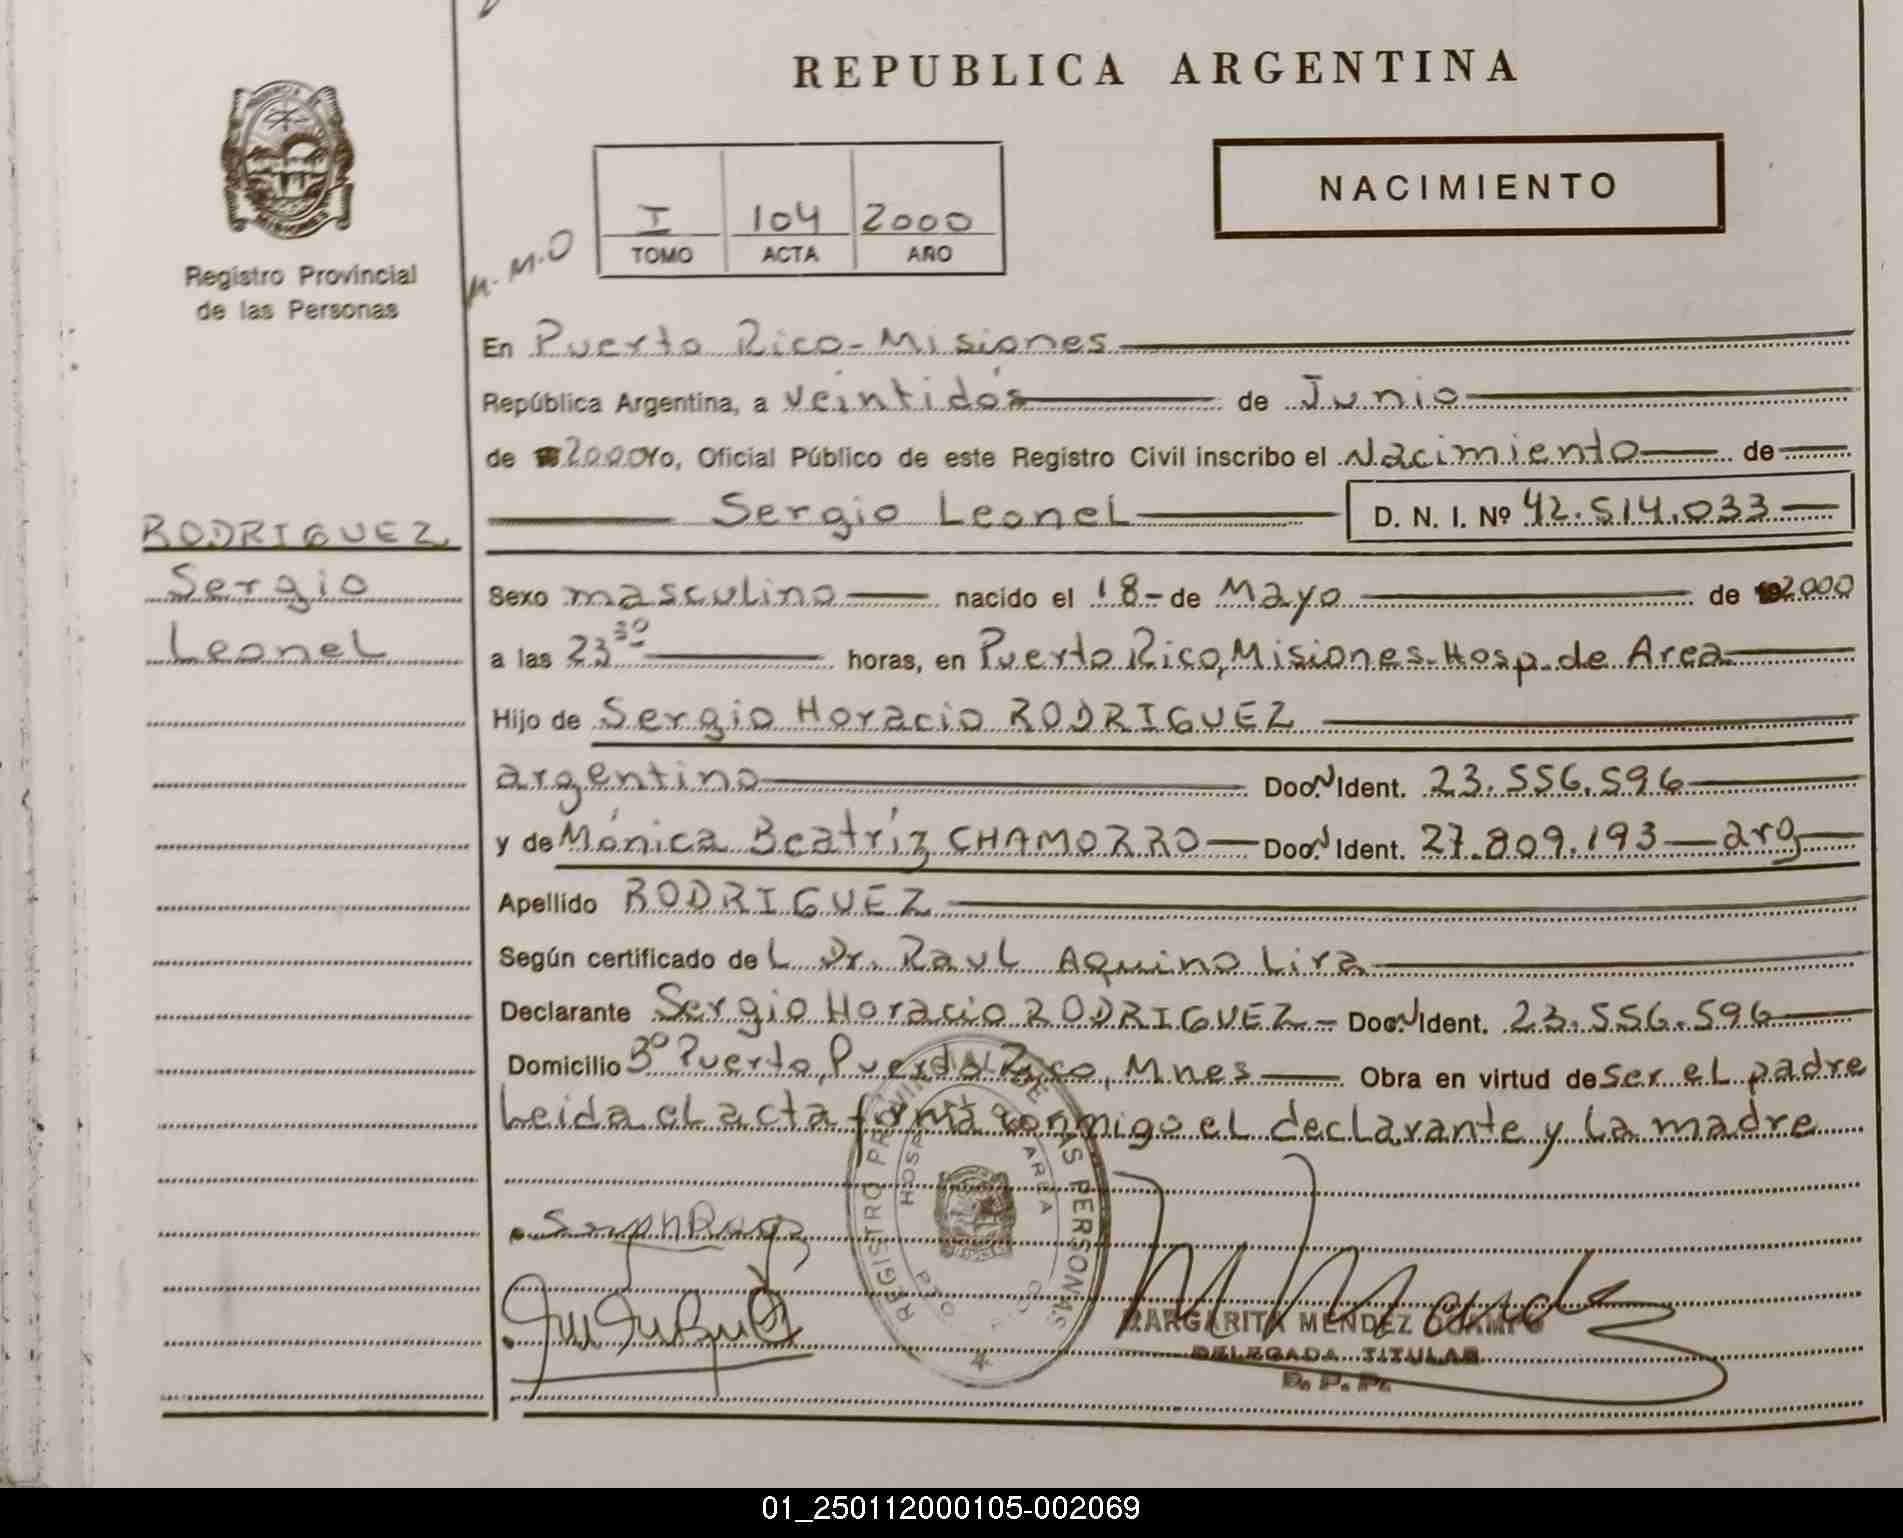 REPUBLICA ARGENTINA
NACIMIENTO
I 104 2000
TOMO ACTA AÑO
M.M.O
Registro Provincial
de las Personas
En Puerto Rico-Misiones
República Argentina, a veintidós de Junio
de 2000 Yo, Oficial Público de este Registro Civil inscribo el Nacimiento de
Sergio Leonel D. N. I. Nº 42.514.033
RODRIGUEZ
Sergio
Leonel
Sexo masculino nacido el 18- de Mayo de 2000
a las 23 30 horas, en Puerto Rico, Misiones-Hosp. de Area
Hijo de Sergio Horacio RODRIGUEZ
argentino Doc. N Ident. 23.556.596
y de Mónica Beatríz CHAMORRO Doc. N Ident. 27.809.193 arg
Apellido RODRIGUEZ
Según certificado de L Dr. Raul Aquino Lira
Declarante Sergio Horacio RODRIGUEZ Doc. N Ident. 23.556.596
Domicilio Bº Puerto, Puerto Rico, Mnes Obra en virtud de ser el padre
Leida el acta firma conmigo el declarante y la madre
REGISTRO PROVINCIAL DE LAS PERSONAS
HOSP AREA
MARGARITA MENDEZ OCAMPO
DELEGADA TITULAR
R. P. P.
01_250112000105-002069